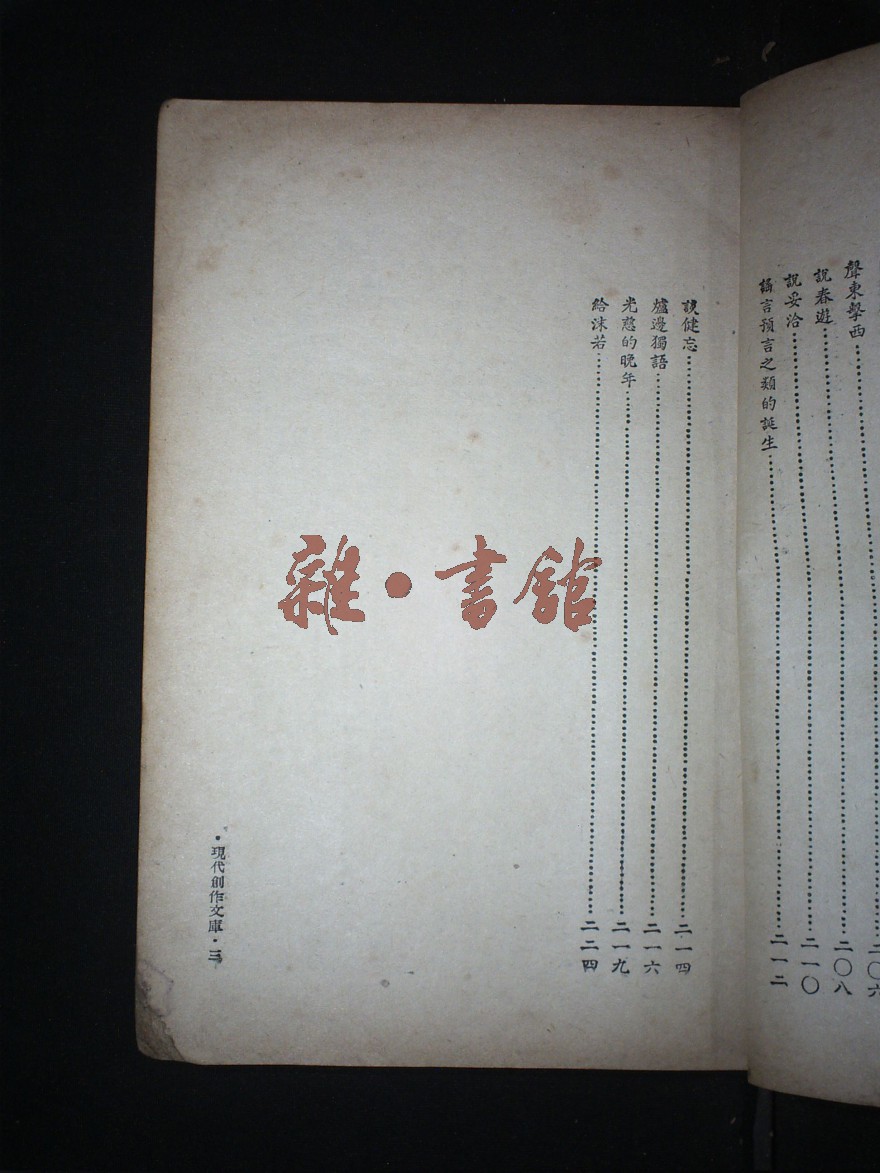 聲東擊西……二〇六
説春遊……二〇八
説妥洽……二一〇
謠言預言之類的誕生……二一二
談健忘……二一四
爐邊獨語……二一六
光慈的晚年……二一九
給沫若……二二四
•現代創作文庫•三
雜•書館